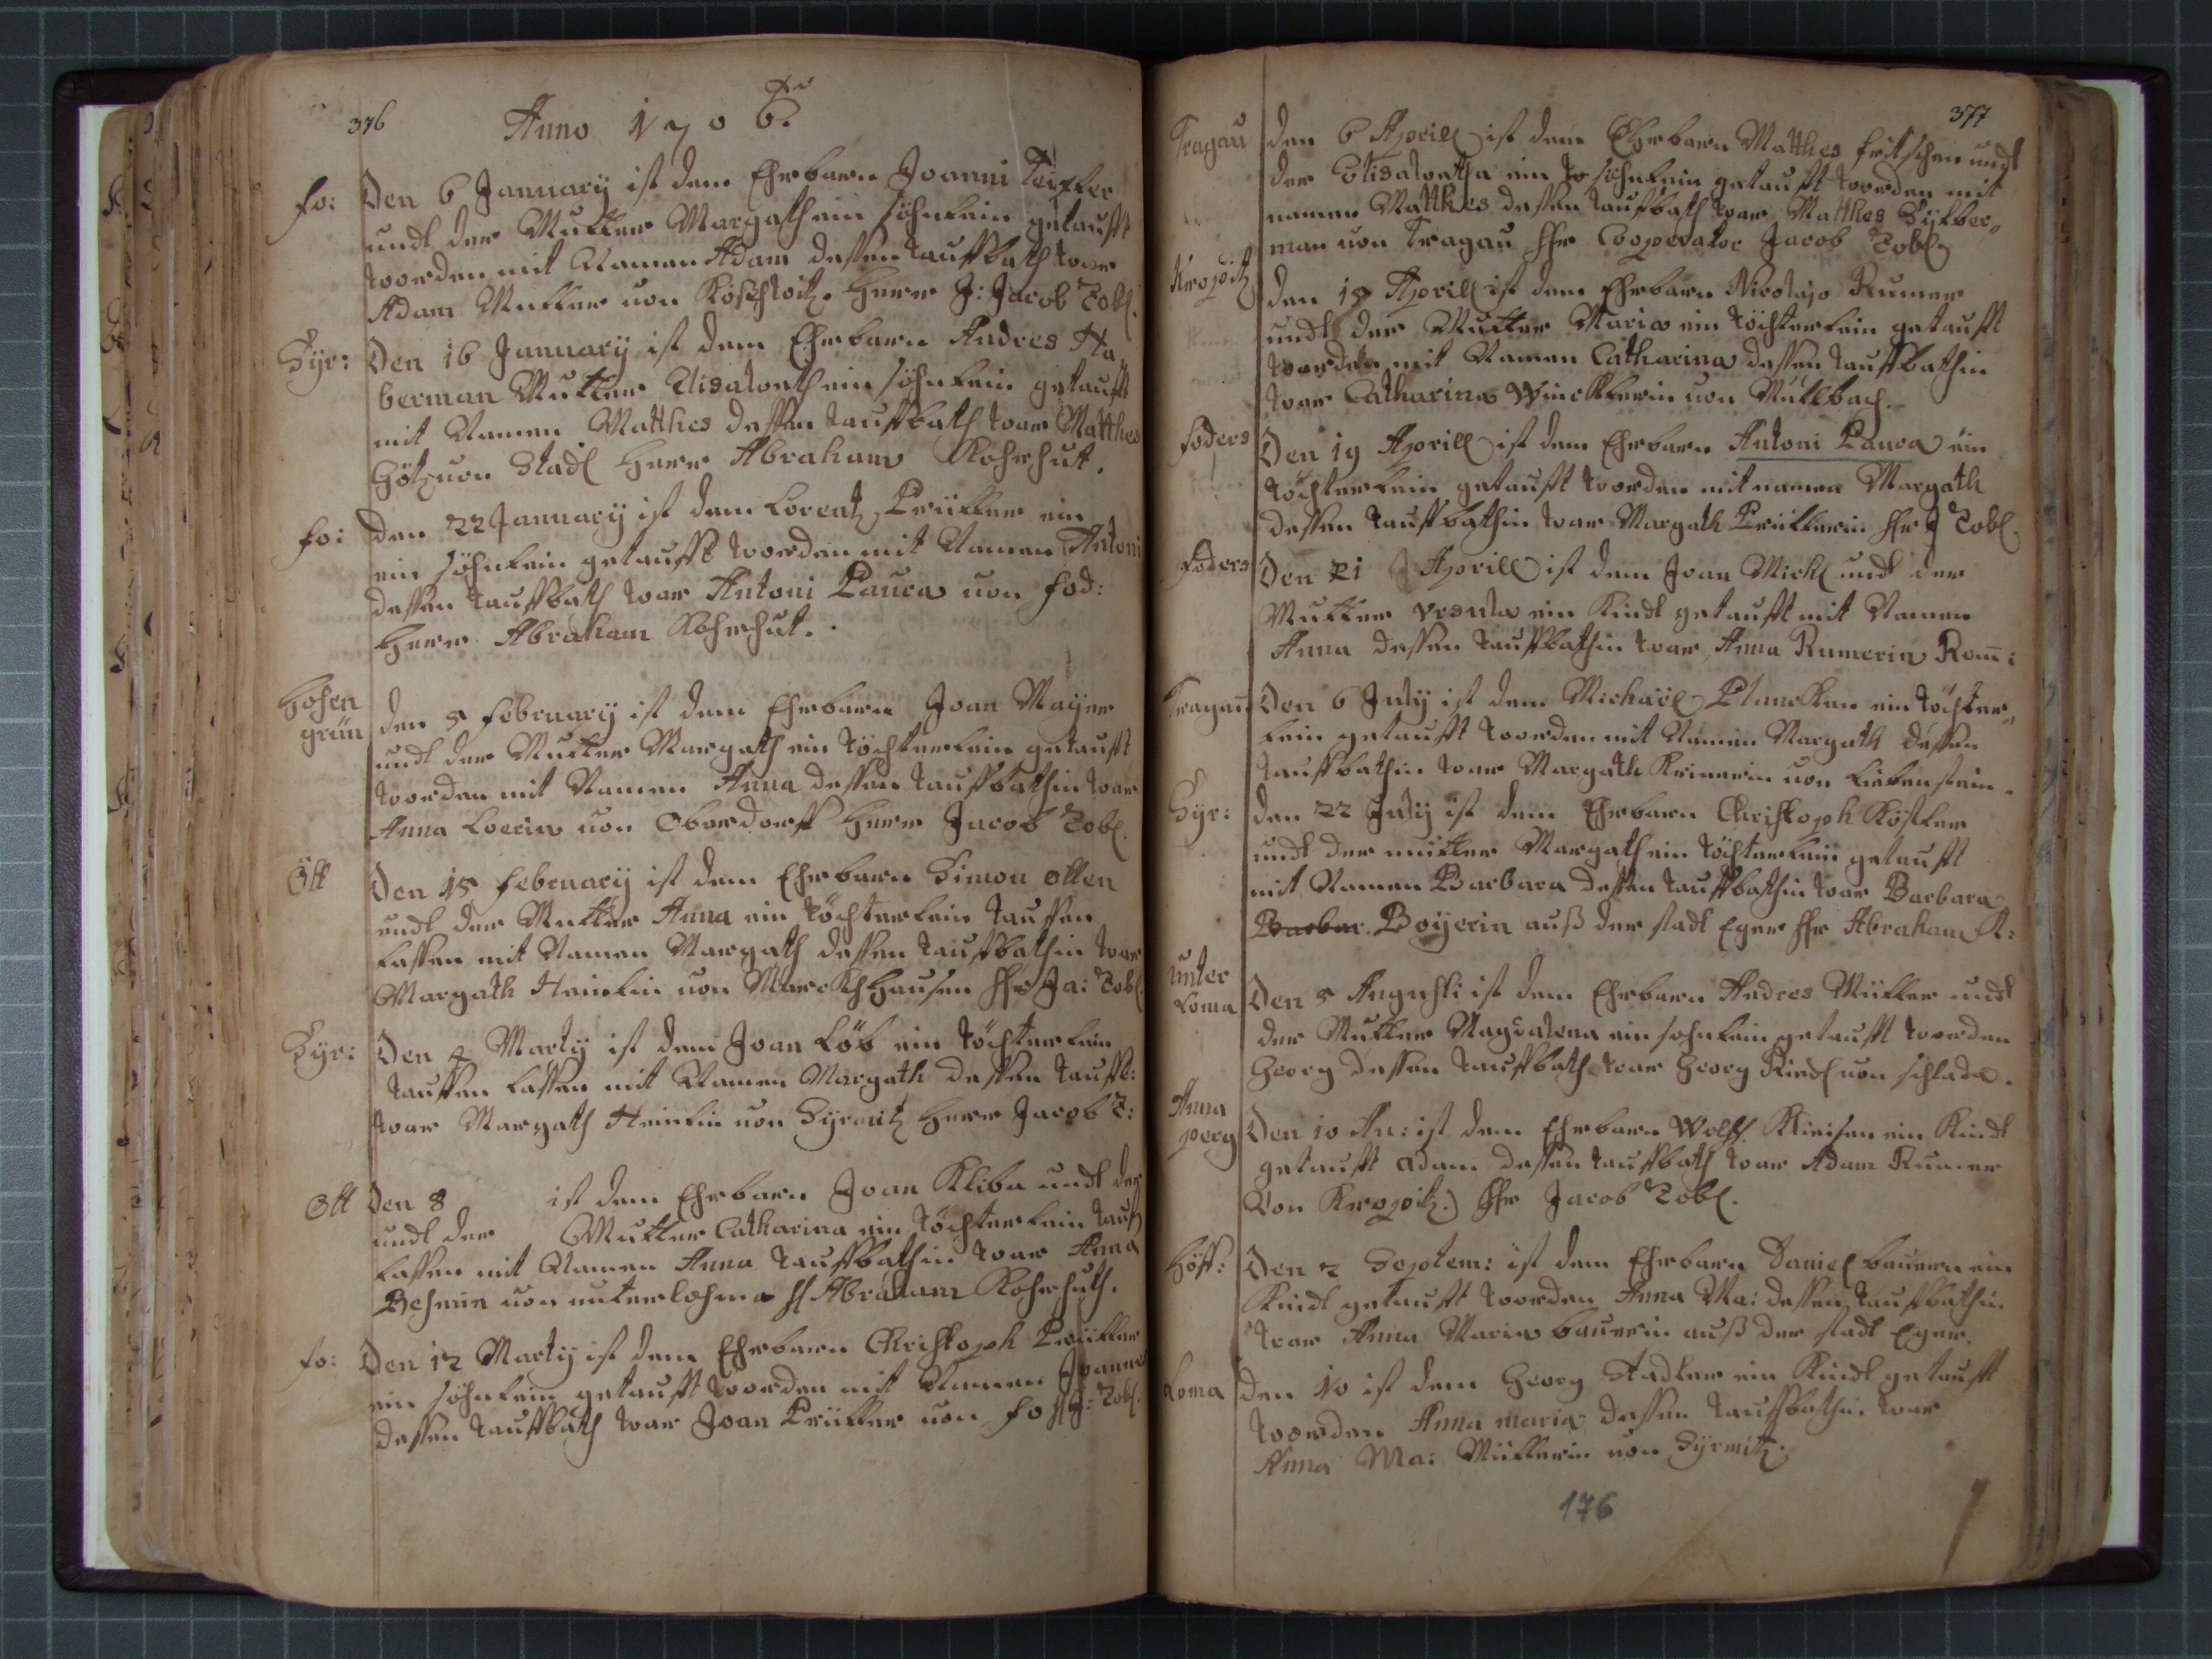 376
Anno 1706.
fo: Den 6 January ist dem Ehrbarn Joanni
undt der Mutter Margath ein söhnlein getaufft
worden mit Namen Adam dessen tauffbath war
Adam Müller von Herr J: Jacob Tobl.
Syr: Den 16 January ist dem Ehrbarn Andres Ha
berman Mutter Elisabeth ein söhnlein getaufft
mit Namen Matthes dessen tauffbath war Matthes
Götz von Stadl Herr Abraham Rohrhut.
fo: den 22 January ist dem Lorentz ein
ein söhnlein getaufft worden mit Namen Antoni
dessen tauffbath war Antoni Laura von fod:
Herr Abraham Rohrhut.
Hohen
grün den 5 february ist dem Ehrbarn Joan Mayer
undt der Mutter Margath ein töchterlein getaufft
worden mit Namen Anna dessen tauffbathin war
Anna von Oberdorff Herr Jacob Tobl.
Ott Den 15 february ist dem Ehrbarn Simon otten
undt der Mutter Anna ein töchterlein tauffen
lassen mit Namen Margath dessen tauffbathin war
Margath Heinlin von Marckhhausen Hr Ja: Tobl.
Syr: Den Marty ist dem Joan Löb ein töchterlein
tauffen lassen mit Namen Margath dessen tauffb:
war Margath Heinlin von Syrmitz Herr Jacob T:
Ott Den 8 ist dem Ehrbarn Joan Kliba undt der
undt der Mutter Catharina ein töchterlein tauff
lassen mit Namen Anna tauffbathin war Anna
von unterlohma H Abraham Rohrhuth.
fo: Den 12 Marty ist dem Ehrbarn Christoph
ein söhnlein getaufft worden mit Namen Joannes
dessen tauffbath war Joan von fo H J: Tobl.
377
Tragau den 6 Aprill ist dem Ehrbarn Matthes fritschen undt
der Elisabetha ein söhnlein getaufft worden mit
namen Matthes dessen tauffbath war Matthes
man von Tragau Hr Cooperator Jacob Tobl
Kropitz den 18 Aprill ist dem Ehrbarn Nicolajo Rumer
undt der Mutter Maria ein töchterlein getaufft
worden mit Namen Catharina dessen tauffbathin
war Catharina Wincklerin von Mülbach.
foders Den 19 Aprill ist dem Ehrbarn Antoni Laura ein
töchterlein getaufft worden mit namen Margath
dessen tauffbathin war Margath Hr J Tobl.
foders Den 21 Aprill ist dem Joan Michl undt der
Mutter Ursula ein Kindt getaufft mit Namen
Anna dessen tauffbathin war Anna Rumerin Rom:
Tragau Den 6 July ist dem Michael Plancken ein töchter„
lein getaufft worden mit Namen Margath dessen
tauffbathin war Margath von Liebenstein.
Syr: den 22 July ist dem Ehrbarn Christoph Köstler
undt der mutter Margath ein töchterlein getaufft
mit Namen Barbara dessen tauffbathin war Barbara
Barbar. Boyerin auß der stadt Eger Hr Abraham R:
unter
Loma Den 5 Augusti ist dem Ehrbarn Andres Müller undt
der Mutter Magdalena ein sohnlein getaufft worden
Georg dessen tauffbath war Georg Riedl von schlada.
Anna
perg Den 10 Au: ist dem Ehrbarn Wolff ein Kindt
getaufft adam dessen tauffbath war Adam Rumer
Von Kropitz.) Hr Jacob Tobl.
Höff: Den 2 Septem: ist dem Ehrbarn Daniel bauern ein
Kindt getaufft worden Anna Ma: dessen tauffbathin
war Anna Maria bauerin auß der stadt Eger.
Loma den 10 ist dem Georg Stadler ein Kindt getaufft
worden Anna maria dessen tauffbathin war
Anna Ma: Müllerin von Syrmitz.
176